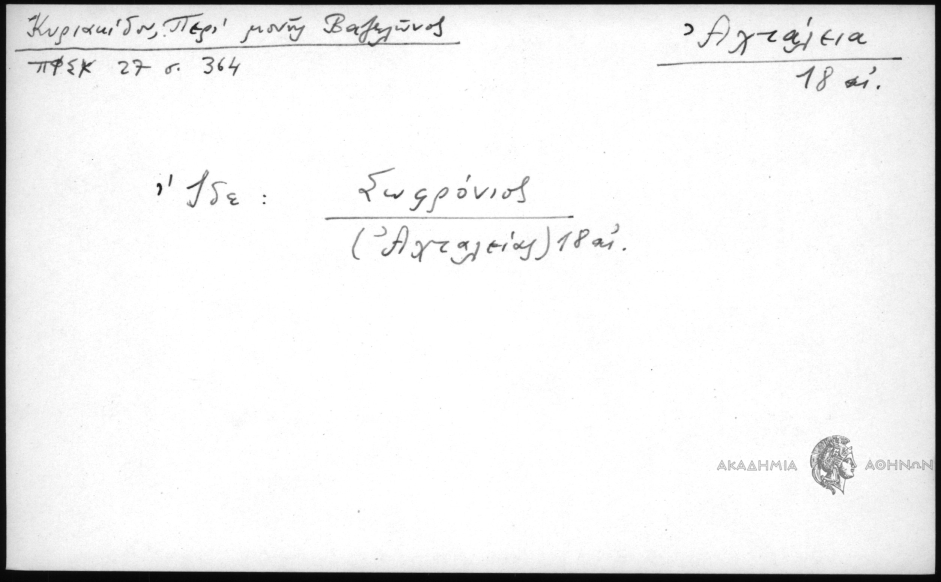 Κυριακίδου, Περί μονῆς Βαζελῶνος
ΠΦΣΚ 27 σ. 364
Ἀχταλεια
18 αἰ.
Ἴδε : Σωφρόνιος
(Ἀχταλείας) 18 αἰ.
ΑΚΑΔΗΜΙΑ ΑΘΗΝΩΝ